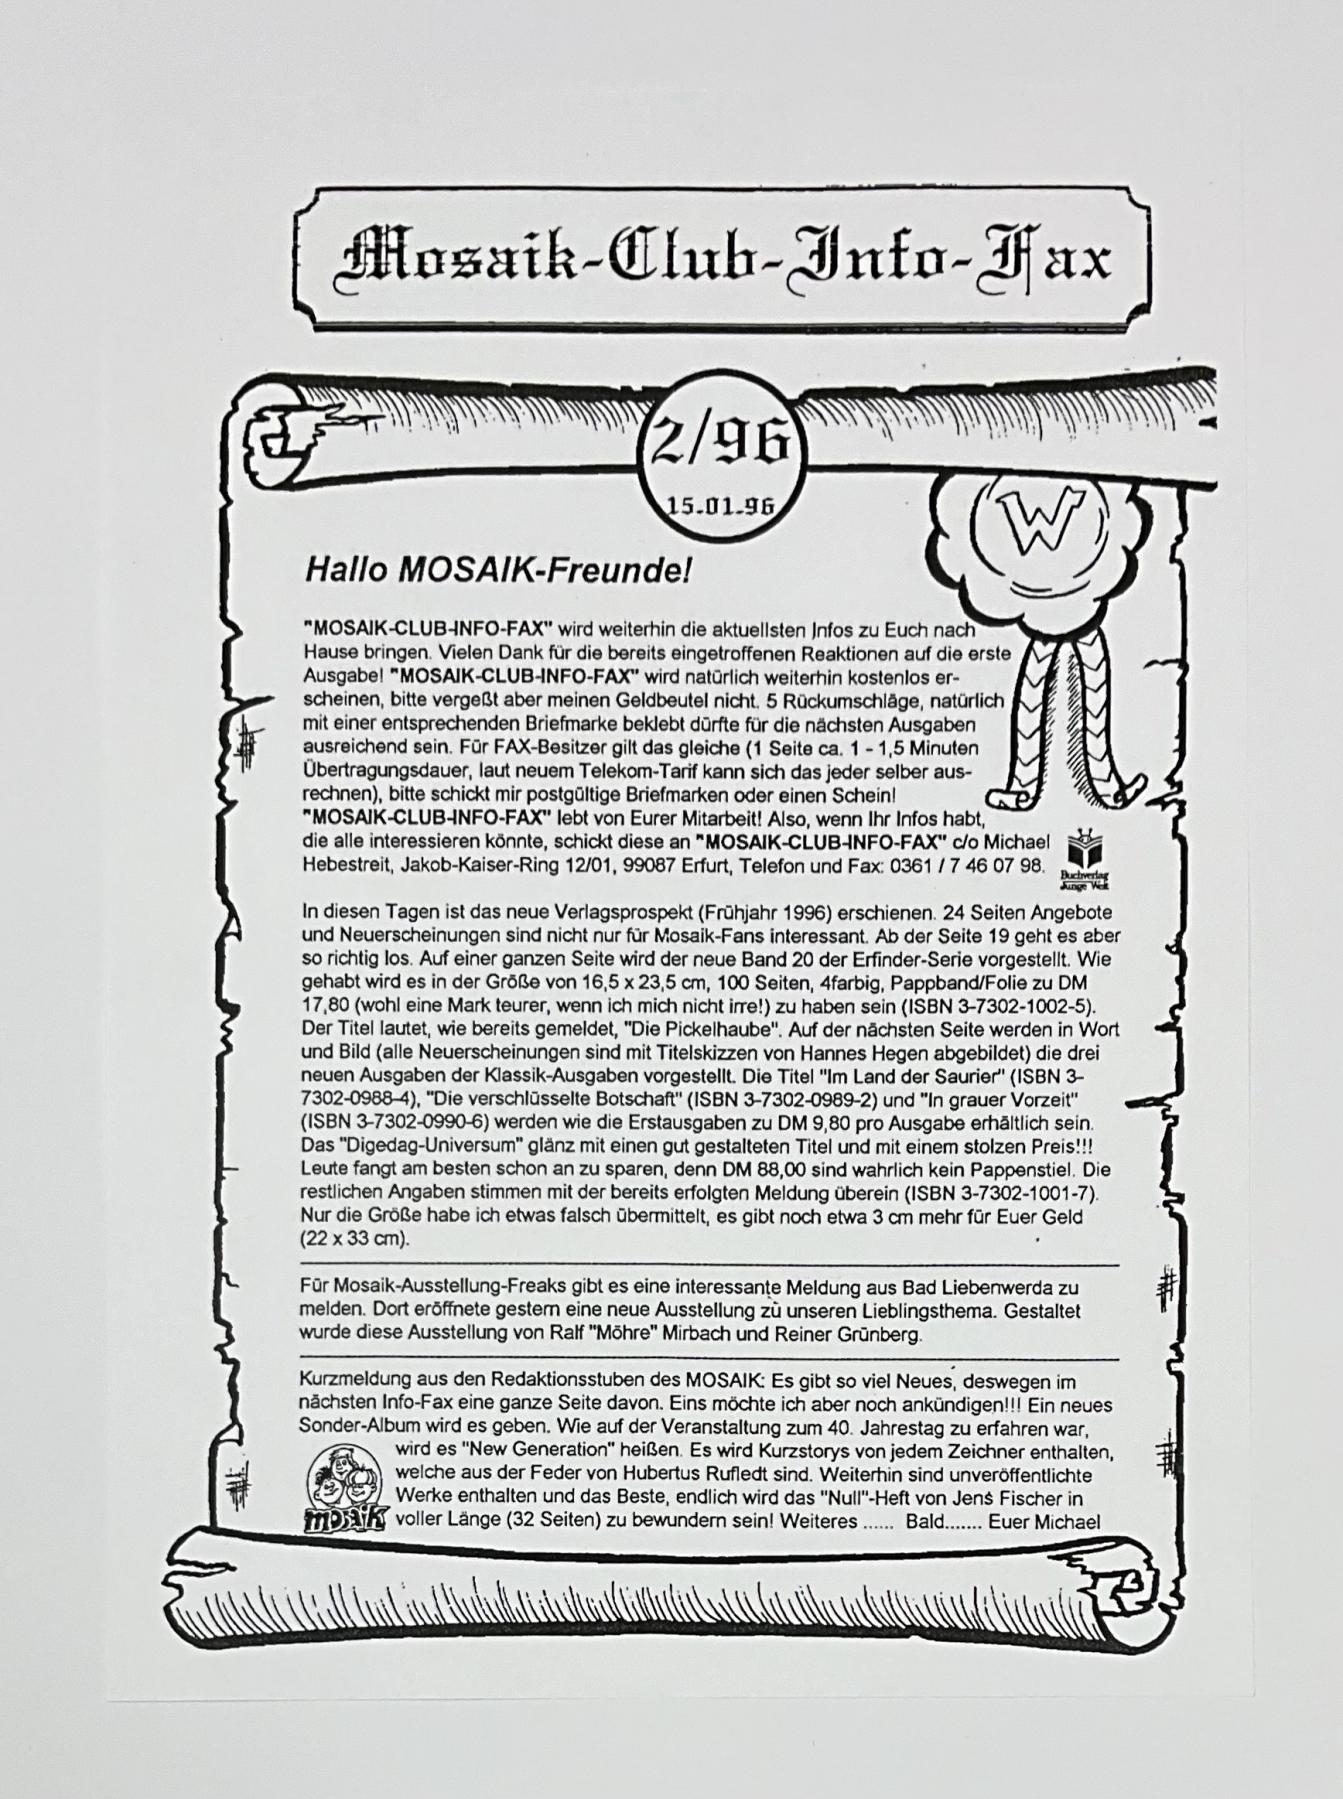 Mosaik-Club-Info-Fax
2/96
15.01.96
W
Hallo MOSAIK-Freunde!
"MOSAIK-CLUB-INFO-FAX" wird weiterhin die aktuellsten Infos zu Euch nach
Hause bringen. Vielen Dank für die bereits eingetroffenen Reaktionen auf die erste
Ausgabe! "MOSAIK-CLUB-INFO-FAX" wird natürlich weiterhin kostenlos er-
scheinen, bitte vergeßt aber meinen Geldbeutel nicht. 5 Rückumschläge, natürlich
mit einer entsprechenden Briefmarke beklebt dürfte für die nächsten Ausgaben
ausreichend sein. Für FAX-Besitzer gilt das gleiche (1 Seite ca. 1 - 1,5 Minuten
Übertragungsdauer, laut neuem Telekom-Tarif kann sich das jeder selber aus-
rechnen), bitte schickt mir postgültige Briefmarken oder einen Schein!
"MOSAIK-CLUB-INFO-FAX" lebt von Eurer Mitarbeit! Also, wenn Ihr Infos habt,
die alle interessieren könnte, schickt diese an "MOSAIK-CLUB-INFO-FAX" c/o Michael
Hebestreit, Jakob-Kaiser-Ring 12/01, 99087 Erfurt, Telefon und Fax: 0361 / 7 46 07 98.
Buchverlag
Junge Welt
In diesen Tagen ist das neue Verlagsprospekt (Frühjahr 1996) erschienen. 24 Seiten Angebote
und Neuerscheinungen sind nicht nur für Mosaik-Fans interessant. Ab der Seite 19 geht es aber
so richtig los. Auf einer ganzen Seite wird der neue Band 20 der Erfinder-Serie vorgestellt. Wie
gehabt wird es in der Größe von 16,5 x 23,5 cm, 100 Seiten, 4farbig, Pappband/Folie zu DM
17,80 (wohl eine Mark teurer, wenn ich mich nicht irre!) zu haben sein (ISBN 3-7302-1002-5).
Der Titel lautet, wie bereits gemeldet, "Die Pickelhaube". Auf der nächsten Seite werden in Wort
und Bild (alle Neuerscheinungen sind mit Titelskizzen von Hannes Hegen abgebildet) die drei
neuen Ausgaben der Klassik-Ausgaben vorgestellt. Die Titel "Im Land der Saurier" (ISBN 3-
7302-0988-4), "Die verschlüsselte Botschaft" (ISBN 3-7302-0989-2) und "In grauer Vorzeit"
(ISBN 3-7302-0990-6) werden wie die Erstausgaben zu DM 9,80 pro Ausgabe erhältlich sein.
Das "Digedag-Universum" glänz mit einen gut gestalteten Titel und mit einem stolzen Preis!!!
Leute fangt am besten schon an zu sparen, denn DM 88,00 sind wahrlich kein Pappenstiel. Die
restlichen Angaben stimmen mit der bereits erfolgten Meldung überein (ISBN 3-7302-1001-7).
Nur die Größe habe ich etwas falsch übermittelt, es gibt noch etwa 3 cm mehr für Euer Geld
(22 x 33 cm).
Für Mosaik-Ausstellung-Freaks gibt es eine interessante Meldung aus Bad Liebenwerda zu
melden. Dort eröffnete gestern eine neue Ausstellung zu unseren Lieblingsthema. Gestaltet
wurde diese Ausstellung von Ralf "Möhre" Mirbach und Reiner Grünberg.
Kurzmeldung aus den Redaktionsstuben des MOSAIK: Es gibt so viel Neues, deswegen im
nächsten Info-Fax eine ganze Seite davon. Eins möchte ich aber noch ankündigen!!! Ein neues
Sonder-Album wird es geben. Wie auf der Veranstaltung zum 40. Jahrestag zu erfahren war,
wird es "New Generation" heißen. Es wird Kurzstorys von jedem Zeichner enthalten,
welche aus der Feder von Hubertus Rufledt sind. Weiterhin sind unveröffentlichte
Werke enthalten und das Beste, endlich wird das "Null"-Heft von Jens Fischer in
voller Länge (32 Seiten) zu bewundern sein! Weiteres ...... Bald....... Euer Michael
mosaik